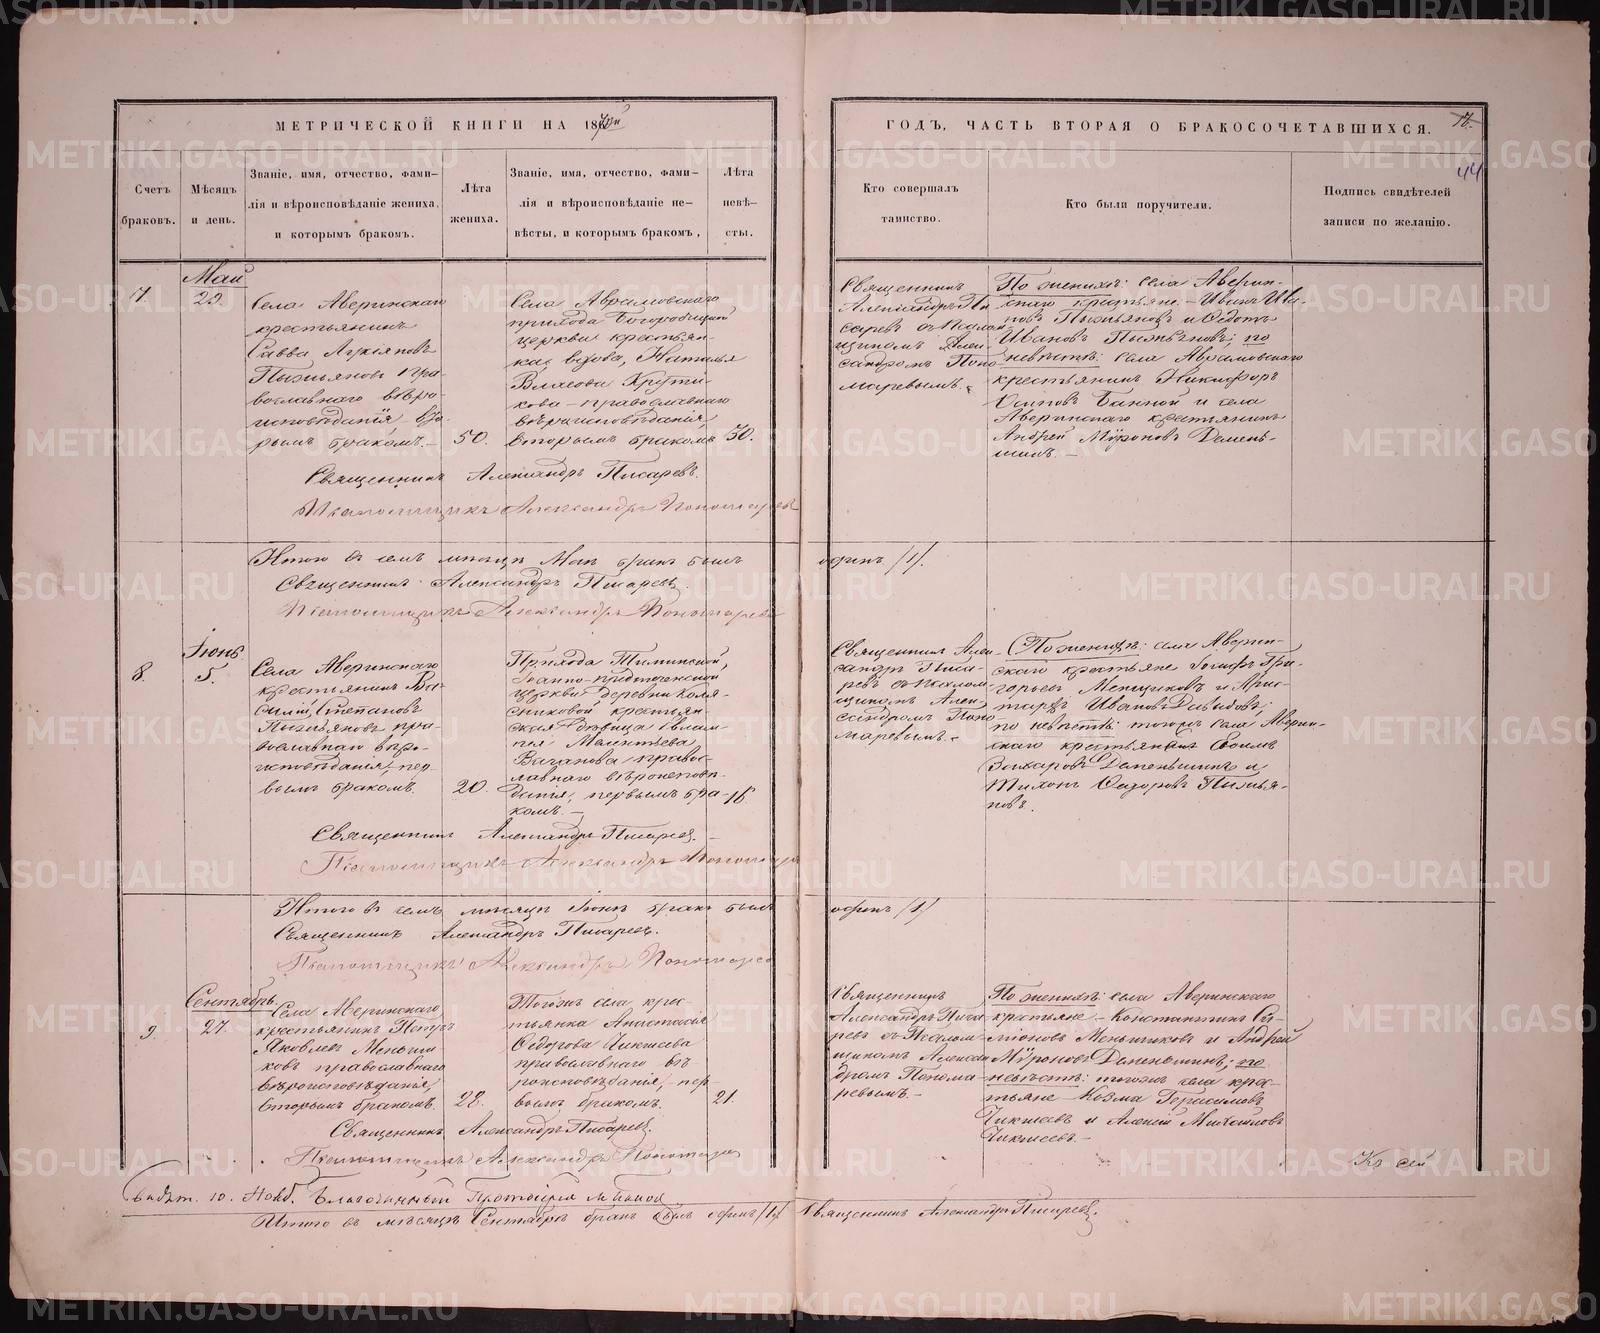 МЕТРИЧЕСКОЙ КНИГИ НА 187
ГОДЪ, ЧАСТЬ ВТОРАЯ О БРАКОСОЧЕТАВШИХСЯ.
44
Счетъ
браковъ.
Мѣсяцъ
и день.
Званіе, имя, отчество, фами-
лія и вѣроисповѣданіе жениха,
и которымъ бракомъ.
Лѣта
жениха.
Званіе, имя, отчество, фами-
лія и вѣроисповѣданіе не-
вѣсты, и которымъ бракомъ,
Лѣта
невѣ-
сты.
Кто совершалъ
таинство.
Кто были поручители.
Подпись свидѣтелей
записи по желанію.
7.
Май
29.
Села Аверинскаго
крестьянинъ
Савва Лукіяновъ
Пызьяновъ пра-
вославнаго вѣро-
исповѣданія, вто-
рымъ бракомъ.
50.
Села Аврамовскаго
прихода Богородицкой
церкви крестьян-
ка, вдова, Наталья
Власова
православнаго
вѣроисповѣданія,
вторымъ бракомъ
50.
Священникъ
Александръ Пи-
саревъ съ псалом-
щикомъ Алек-
сандромъ Поно-
маревымъ.
По женихѣ: села Аверин-
скаго крестьяне Иванъ Ива-
новъ Пызьяновъ и Федотъ
Ивановъ Пызьяновъ; по
невѣстѣ: села Аврамовскаго
крестьянинъ Никифоръ
Осиповъ и села
Аверинскаго крестьянинъ
Андрей Мѵроновъ Деменъ-
шинъ.
Священникъ Александръ Писаревъ.
Псаломщикъ Александръ Пономаревъ
Итого въ семъ мѣсяцѣ Маѣ бракъ былъ
одинъ /1/.
Священникъ Александръ Писаревъ.
Псаломщикъ Александръ Пономаревъ
8.
Іюнь
5.
Села Аверинскаго
крестьянинъ Ва-
силій Степановъ
Пызьяновъ пра-
вославнаго вѣро-
исповѣданія, пер-
вымъ бракомъ.
20.
Прихода
Іоанно-Предтеченской
церкви деревни Коля-
сниковой крестьян-
ская дѣвица Евлам-
пія
Ваганова, правос-
лавнаго вѣроисповѣ-
данія, первымъ бра-
комъ.
18.
Священникъ Алек-
сандръ Писа-
ревъ съ псалом-
щикомъ Алек-
сандромъ Поно-
маревымъ.
По женихѣ: села Аверин-
скаго крестьяне Іосифъ Гри-
горьевъ Меньщиковъ и Арис-
тархъ Ивановъ Давыдовъ;
по невѣстѣ: тогожъ села Аверин-
скаго крестьянинъ
Захаровъ Деменьшинъ и
Тихонъ Ѳедоровъ Пызья-
новъ.
Священникъ Александръ Писаревъ.
Псаломщикъ Александръ Пономаревъ
Итого въ семъ мѣсяцѣ Іюнѣ бракъ былъ
одинъ /1/
Священникъ Александръ Писаревъ.
Псаломщикъ Александръ Пономаревъ
9.
Сентябрь
27.
Села Аверинскаго
крестьянинъ Петръ
Яковлевъ Меньши-
ковъ православнаго
вѣроисповѣданія,
вторымъ бракомъ.
22.
Тогожъ села крес-
тьянка Анастасія
Ѳедорова Чикишева
православнаго вѣ-
роисповѣданія, пер-
вымъ бракомъ.
21.
Священникъ
Александръ Писа-
ревъ съ псалом-
щикомъ Алексан-
дромъ Понома-
ревымъ.
По женихѣ: села Аверинскаго
крестьяне Константинъ Си-
міоновъ Меньшиковъ и Андрей
Мѵроновъ Деменьшинъ; по
невѣстѣ: тогожъ села крес-
тьяне Козма Герасимовъ
Чикишевъ и Алексій Михайловъ
Чикишевъ.
Священникъ Александръ Писаревъ.
Псаломщикъ Александръ Пономаревъ
Къ сей
10. Нояб. Благочинный Протоіерей
Итого въ мѣсяцѣ Сентябрѣ бракъ былъ одинъ /1/. Священникъ Александръ Писаревъ.
METRIKI.GASO-URAL.RU